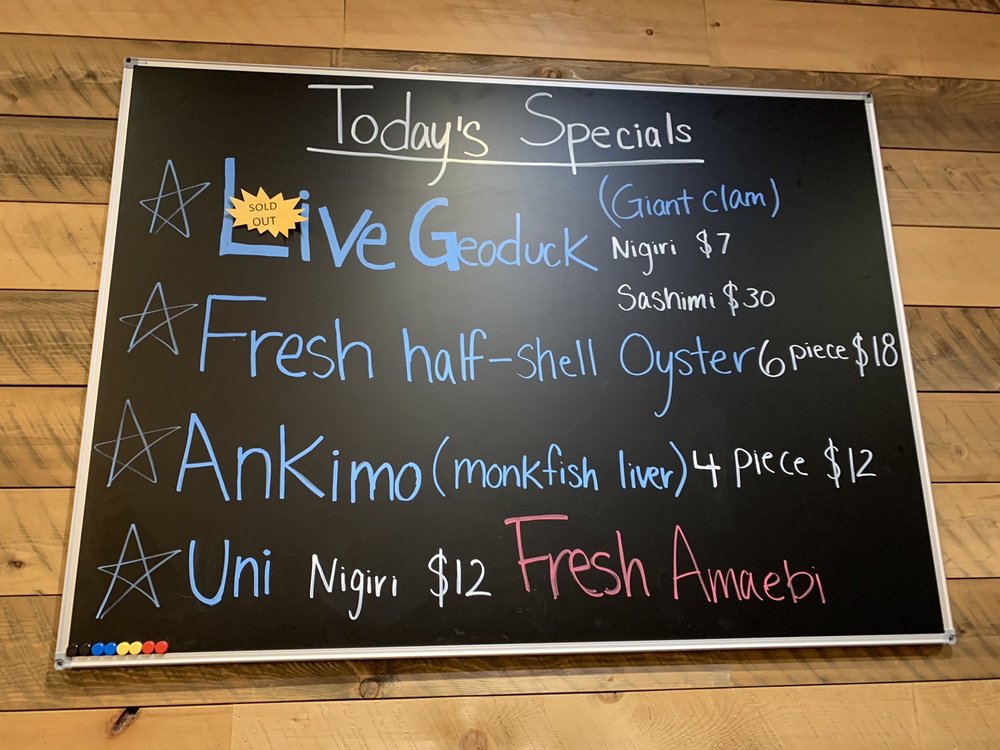 Today's Specials
SOLD
OUT
Live Geoduck (Giant clam)
Nigiri $7
Sashimi $30
Fresh half-shell Oyster 6 piece $18
Ankimo (monkfish liver) 4 piece $12
Uni Nigiri $12 Fresh Amaebi